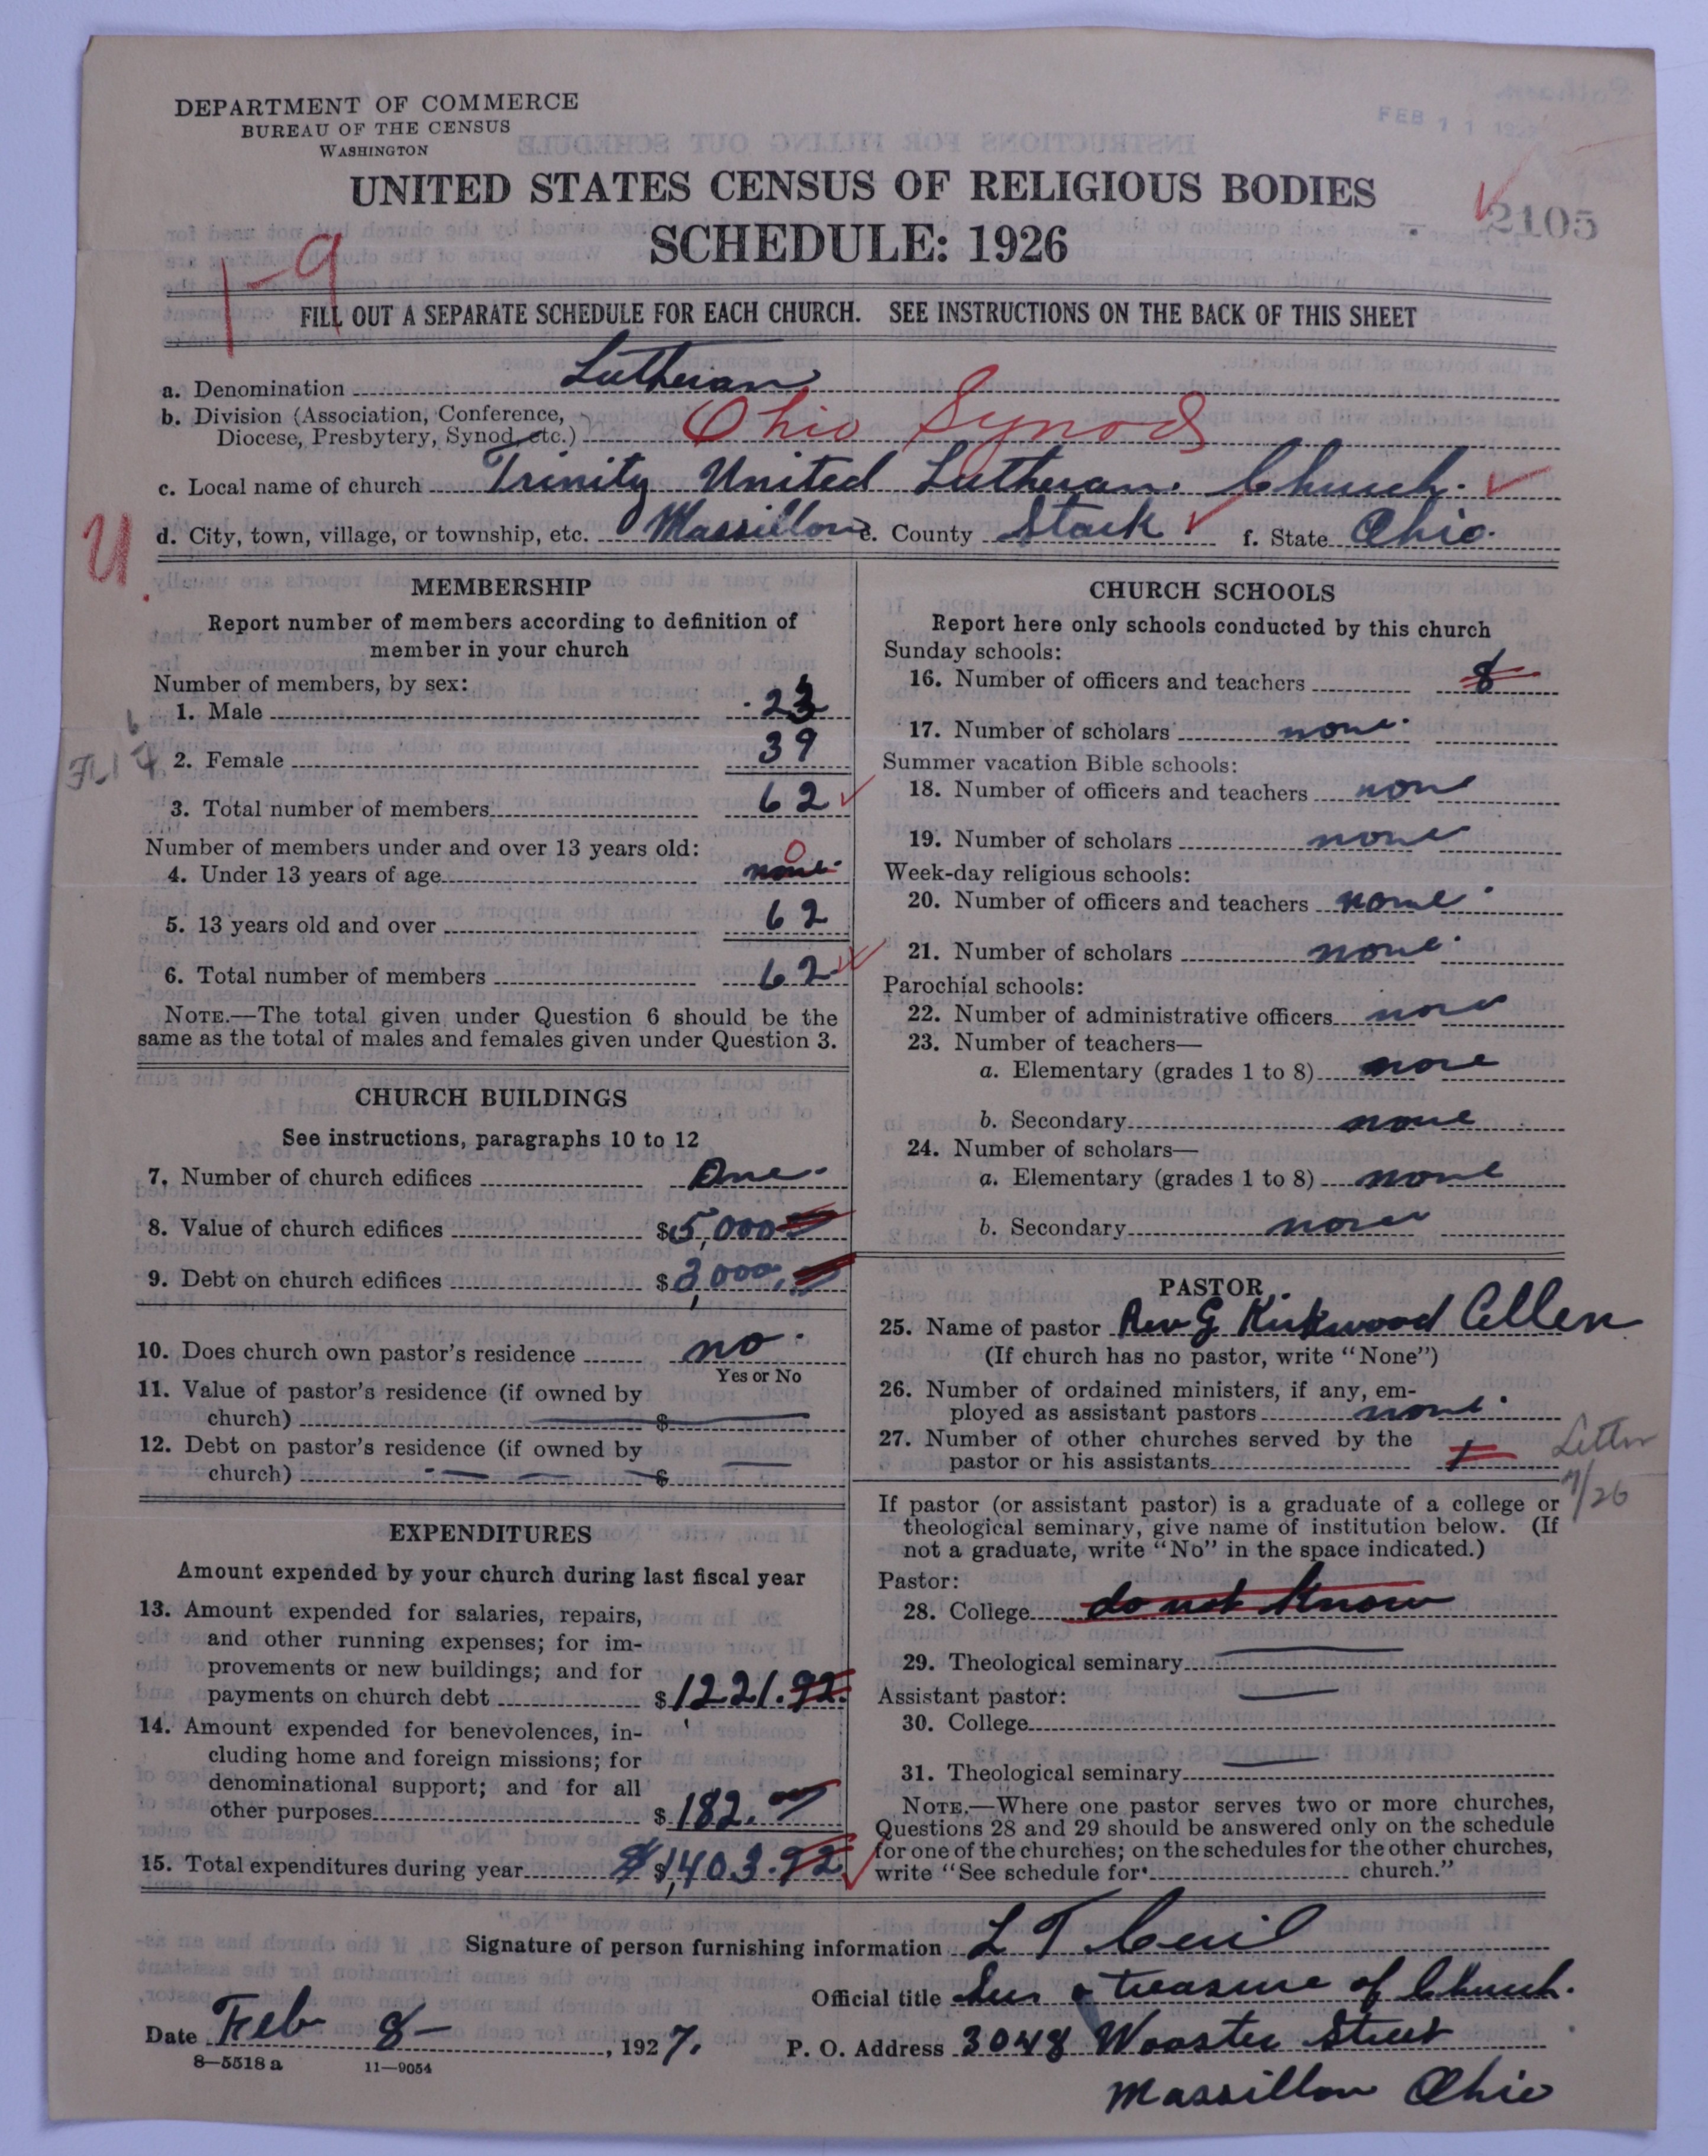 DEPARTMENT OF COMMERCE
BUREAU OF THE CENSUS
WASHINGTON
FEB 11
UNITED STATES CENSUS OF RELIGIOUS BODIES
SCHEDULE: 1926
2105
1-9
FILL OUT A SEPARATE SCHEDULE FOR EACH CHURCH. SEE INSTRUCTIONS ON THE BACK OF THIS SHEET
a. Denomination Lutheran
b. Division (Association, Conference,
Diocese, Presbytery, Synod, etc.) Ohio Synod
c. Local name of church Trinity United Lutheran Church.
U
d. City, town, village, or township, etc. Massillon e. County Stark f. State Ohio.
MEMBERSHIP
Report number of members according to definition of
member in your church
Number of members, by sex:
1. Male 23
2. Female 39
3. Total number of members 62
Number of members under and over 13 years old:
4. Under 13 years of age none 0
5. 13 years old and over 62
6. Total number of members 62
NOTE.—The total given under Question 6 should be the
same as the total of males and females given under Question 3.
CHURCH BUILDINGS
See instructions, paragraphs 10 to 12
7. Number of church edifices One
8. Value of church edifices $5,000
9. Debt on church edifices $3,000
10. Does church own pastor's residence no
Yes or No
11. Value of pastor's residence (if owned by
church) $
12. Debt on pastor's residence (if owned by
church) $
EXPENDITURES
Amount expended by your church during last fiscal year
13. Amount expended for salaries, repairs,
and other running expenses; for im-
provements or new buildings; and for
payments on church debt $1221.92
14. Amount expended for benevolences, in-
cluding home and foreign missions; for
denominational support; and for all
other purposes $182.
15. Total expenditures during year $ $1,403.92
CHURCH SCHOOLS
Report here only schools conducted by this church
Sunday schools:
16. Number of officers and teachers 8
17. Number of scholars none
Summer vacation Bible schools:
18. Number of officers and teachers none
19. Number of scholars none
Week-day religious schools:
20. Number of officers and teachers none
21. Number of scholars none
Parochial schools:
22. Number of administrative officers none
23. Number of teachers—
a. Elementary (grades 1 to 8) none
b. Secondary none
24. Number of scholars—
a. Elementary (grades 1 to 8) none
b. Secondary none
PASTOR
25. Name of pastor Rev G Kirkwood Allen
(If church has no pastor, write "None")
26. Number of ordained ministers, if any, em-
ployed as assistant pastors none
27. Number of other churches served by the
pastor or his assistants 1
Letter
If pastor (or assistant pastor) is a graduate of a college or
theological seminary, give name of institution below. (If
not a graduate, write "No" in the space indicated.)
Pastor:
28. College do not know
29. Theological seminary
Assistant pastor:
30. College
31. Theological seminary
NOTE.—Where one pastor serves two or more churches,
Questions 28 and 29 should be answered only on the schedule
for one of the churches; on the schedules for the other churches,
write "See schedule for church."
Signature of person furnishing information L T
Official title treasure of Church.
Date Feb 8—, 1927. P. O. Address 3048 Wooster Street
8—5518 a 11—9054
Massillon Ohio